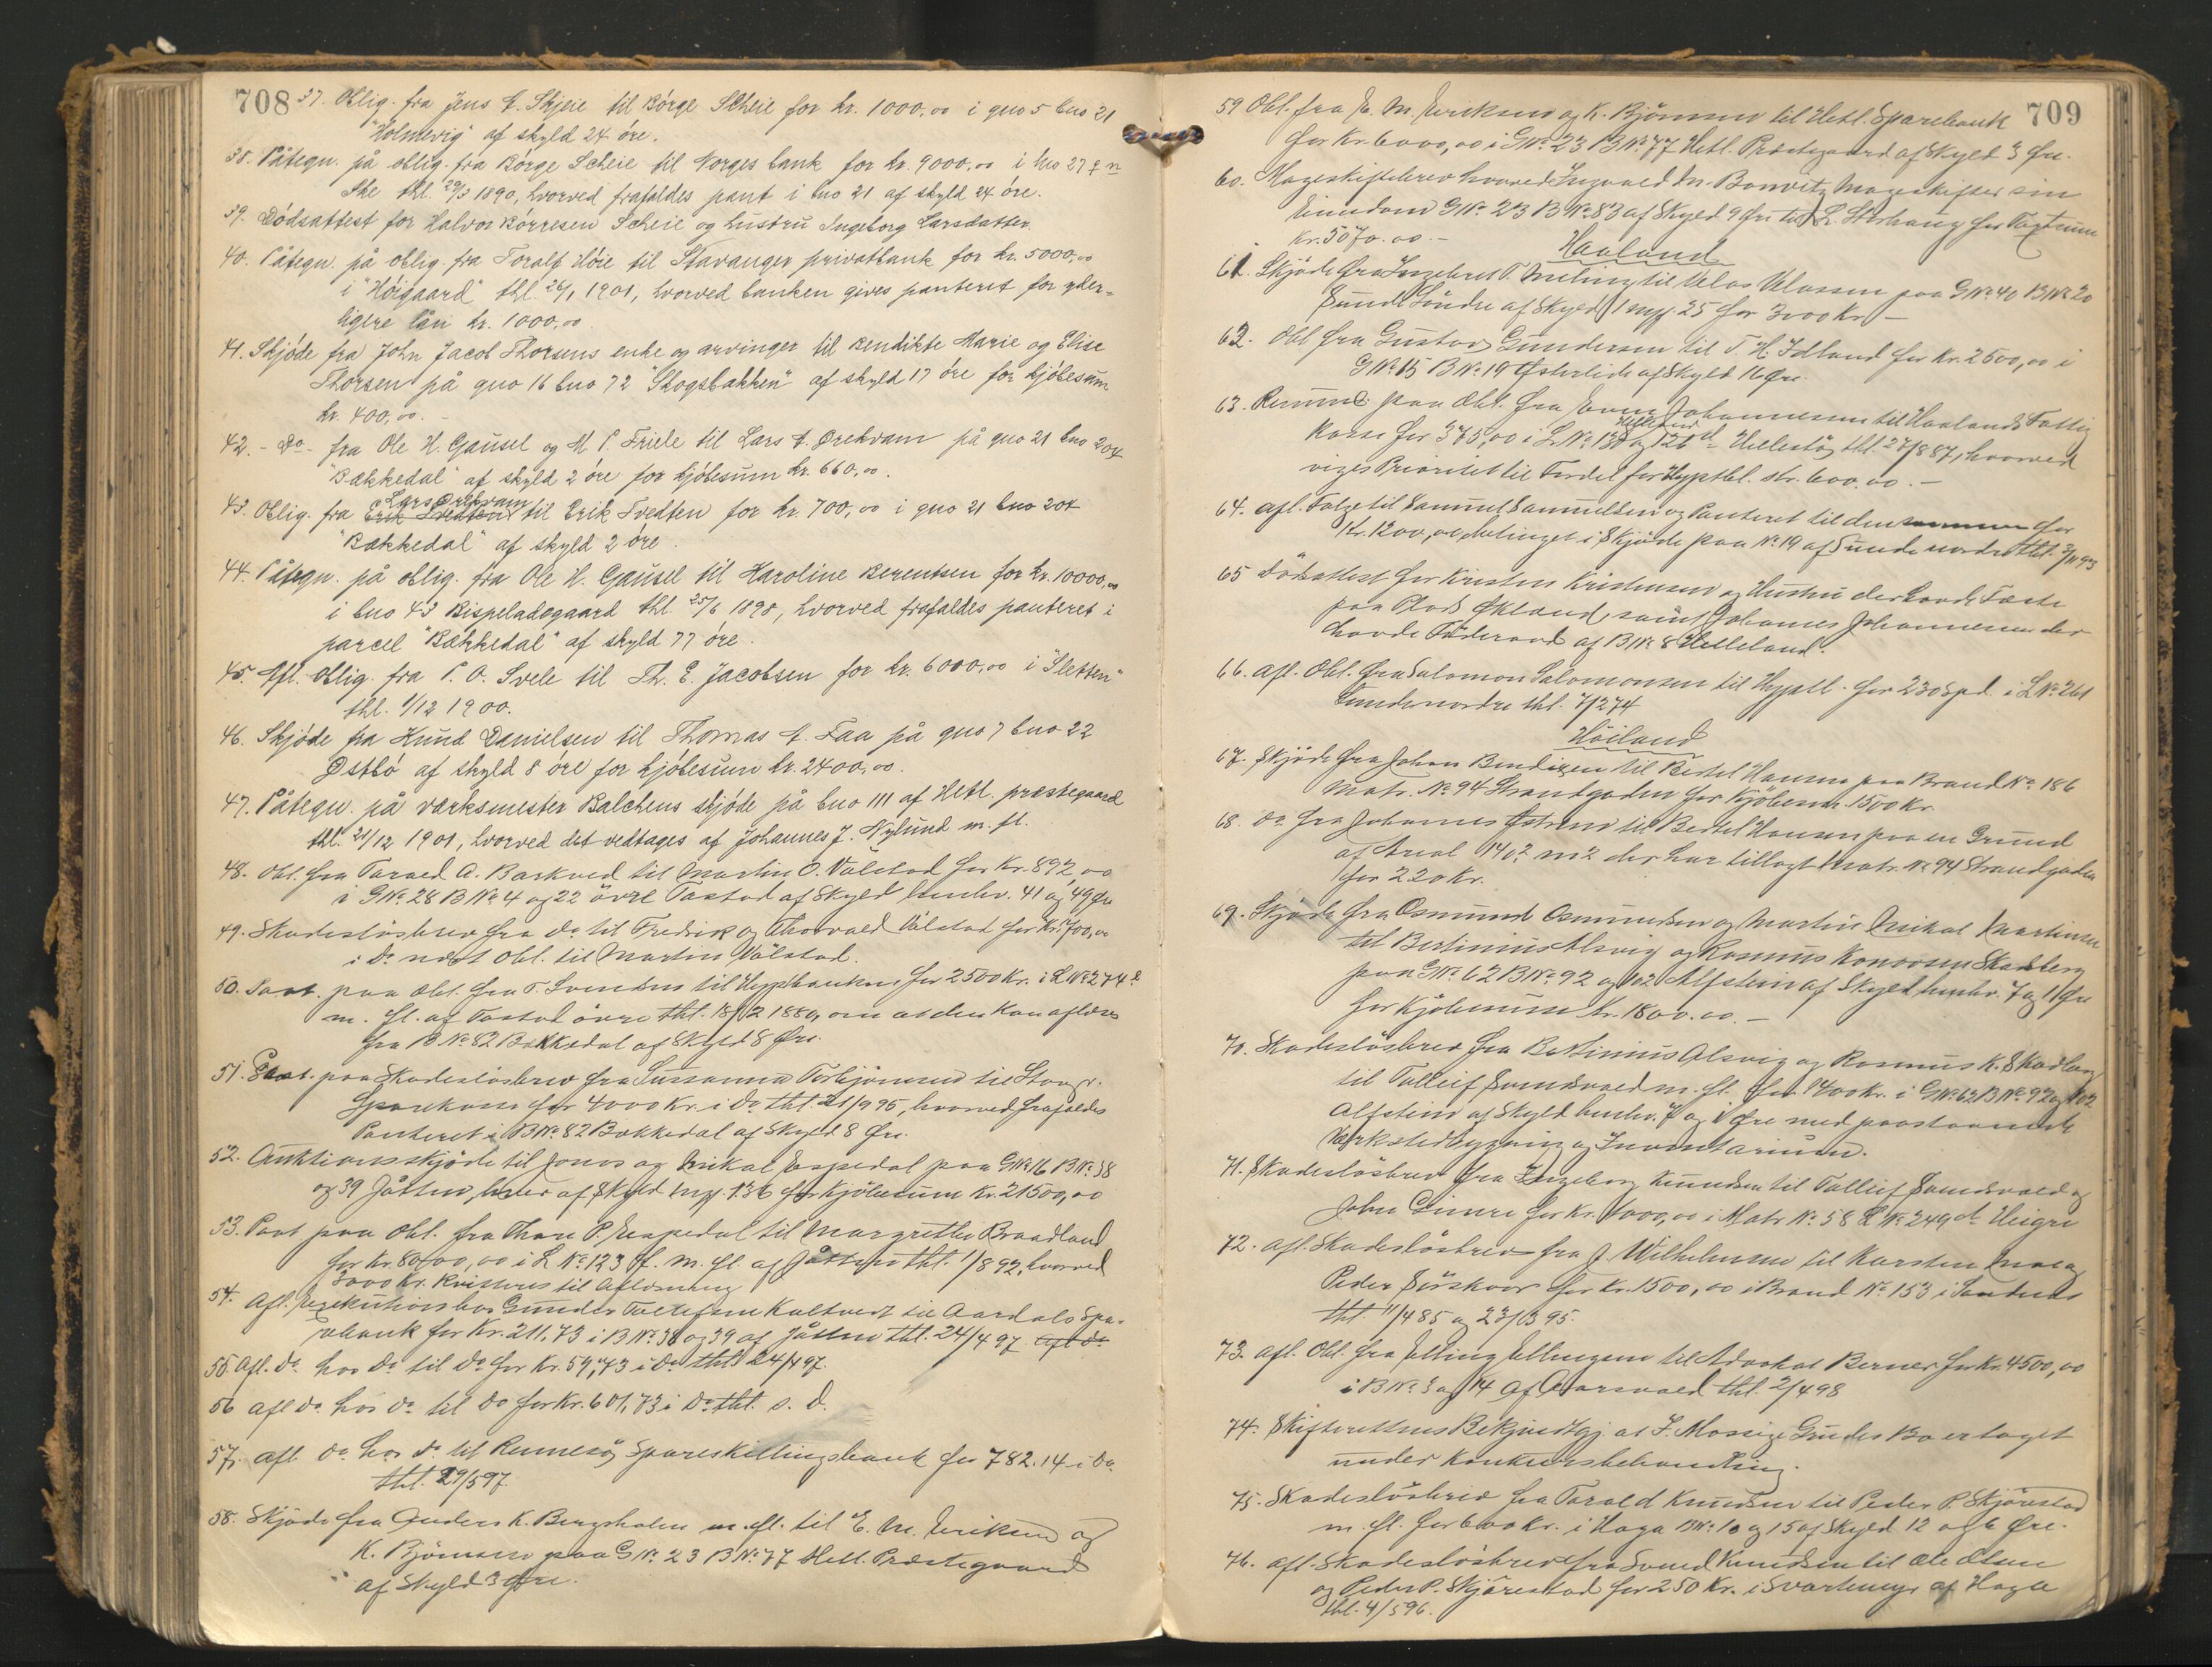 708
37. Oblig. fra Jens A. Skjeie til Børge Scheie for kr. 1000,00 i gno 5 bno 21
"Holmevig" af skyld 24 øre.
38. Påtegn. på oblig. fra Børge Scheie til Norges bank for kr. 9000,00 i lno 27
Ske thl. 29/3 1890, hvorved frafaldes pant i bno 21 af skyld 24 øre.
39. Dødsattest for Halvor Børresen Scheie og hustru Ingeborg Larsdatter.
40. Påtegn. på oblig. fra Toralf Høie til Stavanger privatbank for kr. 5000,00
i "Høigaard" thl. 26/1 1901, hvorved banken gives panteret for yder-
ligere lån kr. 1000,00
41. Skjøde fra John Jacob Thorsens enke og arvinger til Bendikte Marie og Elise
Thorsen på gno 16 bno 72 "Skogsbakken" af skyld 17 øre for kjøbesum
kr. 400,00. -
42. - Do - fra Ole H. Gausel og M. P. Friele til Lars A. Orekvam på gno 21 bno 204
"Bækkedal" af skyld 2 øre for kjøbesum kr. 660,00.
43. Oblig. fra Erik Tvedten Lars Orekvam til Erik Tvedten for kr. 700,00 i gno 21 bno 204
"Bækkedal" af skyld 2 øre.
44. Påtegn. på oblig. fra Ole H. Gausel til Haroline Berentsen for kr. 10000,00
i bno 43 Bispeladegaard thl. 25/6 1898, hvorved frafaldes panteret i
parcel "Bækkedal" af skyld 77 øre.
45. Afl. oblig. fra P. O. Svele til Th. E. Jacobsen for kr. 6000,00 i "Sletten"
thl. 1/12 1900.
46. Skjøde fra Knud Danielsen til Thomas A. Faa på gno 7 bno 22
Østbø af skyld 8 øre for kjøbesum kr. 2400,00.
47. Påtegn. på værksmester Balchens skjøde på bno 111 af Hetl. præstegaard
thl. 21/12 1901, hvorved det vedtages af Johannes J. Nylund m. fl.
48. Obl. fra Tarald A. Barkved til Martin O. Vålstad for Kr. 892,00
i GNo 28 BNo 4 og 22 øvre Tastad af Skyld henhv. 41 og 49 Øre
49. Skadesløsbrev fra do til Fredrik og Thorvald Vålstad for Kr. 700,00
i Do næst Obl. til Martin Vålstad.
50. Paat. paa Obl. fra T. Svendsen til Hypbanken for 2500 Kr. i LNo 274
m. fl. af Tastad øvre thl. 18/12 1880, om at den kan aflæses
fra BNo 82 Bækkedal af Skyld 8 Øre.
51. Paat. paa Skadesløsbrev fra Sussanna Torbjørnsen til Stavgr.
Sparekasse for 4000 Kr. i do thl. 21/9 95, hvorved frafaldes
Panteret i BNo 82 Bækkedal af Skyld 8 Øre.
52. Auktionsskjøde til Jonas og Mikal Espedal paa GNo 16 BNo 38
og 39 Jåtten, hver af Skyld Mrk. 1.36 for Kjøbesum Kr. 21500,00
53. Paat paa Obl. fra Thore P. Espedal til Margrethe Braadland
for Kr. 8000,00 i LNo 123 f. m. fl. af Jåtten thl. 1/8 92, hvorved
3000 Kr. kvitteres til Aflæsning
54. Afl. Exekution hos Gunder Tollefsen Kaltvedt til Aardals Spa-
rebank for Kr. 211,73 i BNo 38 og 39 af Jåtten thl. 24/4 97 Afl do
55 Afl. do hos do til do for Kr. 59,73 i do thl. 24/4 97.
56 Afl do hos do til do for Kr. 601,73 i do thl. s. d.
57. Afl do hos do til Rennesø Spareskillingsbank for 782.14 i do
thl. 29/5 97.
58. Skjøde fra Anders K. Bergsholm m. fl. til E. M. Eriksen og
K. Bjørnsen paa GNo 23 BNo 77 Hetl. Præstegaard
af Skyld 3 Øre.
709
59 Obl. fra E. M. Eriksen og K. Bjørnsen til Hetl. Sparebank
for Kr. 6000,00 i GNo 23 BNo 77 Hetl. Præstegaard af Skyld 3 Øre.
60. Mageskiftebrev hvorved Ingvald M. Bonvitz Mageskifter sin
Eiendom GNo 23 BNo 83 af Skyld 9 Øre til L. Storhaug for
Kr. 5070.00. -
Haaland
61. Skjøde fra Ingebret T. Meling til Velas Velassen paa GNo 40 BNo 20
Sunde Søndre af Skyld 1 Mrk 25 for 3000 Kr. -
62. Obl fra Gustav Gundersen til T. H. Idland for Kr. 2500,00 i
GNo 15 BNo 19 Østerlide af Skyld 16 Øre.
63. paa Obl. fra Johannessen til Haalands Fattig
Kasse for 375,00 i LNo 130 og 126 d Hellestø, thl. 27/8 87, hvorved
viges Prioritet til Fordel for Hypthl. str. 600.00. -
64. Afl. Følge til Samuel Samuelsen og Panteret til den for
Kr. 1200,00 betinget i Skjøde paa No 19 af Sunde nordre thl. 3/11 93
65 Dødsattest for Kristen Kristensen og Hustru der havde Fæste
paa Plads Økland, samt Johannes Johannessen der
havde Føderaad af BNo 8 Helleland.
66. Afl. Obl. fra Salomon Salomonsen til Hypthl. for 230 Spd. i LNo 261
Sunde nordre thl. 7/2 74
Høiland
67. Skjøde fra Johan Bendixen til Bertel Hansen paa Brand No 186
Matr. No 94 Strandgaden for Kjøbesum 1500 Kr.
68. do fra Johannes Østrem til Bertel Hansen paa en Grund
af Areal 140² m2 der har tillagt Matr. No 94 Strandgaden
for 220 Kr.
69. Skjøde fra Osmund Osmundsen og Martin Mikal Martinsen
til Bertinius Alsvig og Rasmus Konradsen Skadberg
paa GNo 62 BNo 92 og 102 Alfstein af Skyld henhv. 7 og 11 Øre
for Kjøbesum Kr. 1800.00. -
70. Skadesløsbrev fra Bertinius Alsvig og Rasmus K. Skadberg
til Tolleif Sømdsvold m. fl. for 1400 Kr. i GNo 62 BNo 92 og 102
Alfstein af Skyld henhv. 7 og 1 Øre med paastaaende
Værkstedbygning og Inventarium.
71. Skadesløsbrev fra Ingeborg Knudsen til Tolleif og
John Gimre for Kr. 1000,00 i Matr No 58 LNo 249 d Heigre
72. Afl. Skadesløsbrev fra J. Wilhelmsen til Karsten Moe og
Peder for Kr. 1500,00 i Brand No 153 i Sandnes
thl. 11/4 85 og 23/ 95.
73. Afl. Obl. fra Elling Ellingsen til Advokat Berner for Kr. 4500,00
i BNo 3 og 14 af Aarsvold thl. 2/4 98
74. Skifterettens Bekjendtgj. at I. Mossige Grudes Bo er taget
under Konkursbehandling.
75. Skadesløsbrev fra Tarald Knudsen til Peder P. Skjørestad
m. fl. for 600 Kr. i Hoga BNo 10 og 15 af Skyld 12 og 6 Øre.
76. Afl. Skadesløsbrev fra Svend Knudsen til Ole Olsen
og Peder P. Skjørestad for 250 Kr. i Svartemyr af Hoga
thl. 4/5 96.